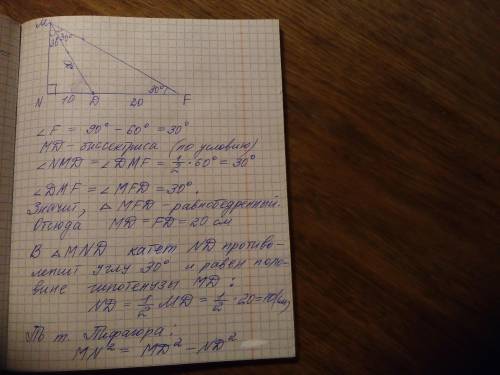 M
30° 30°
N 10 D 20 30° F
∠F = 90° − 60° = 30°
MD – биссектриса (по условию)
∠NMD = ∠DMF = 1/2 · 60° = 30°
∠DMF = ∠MFD = 30°.
Значит, △ MFD – равнобедренный.
Отсюда MD = FD = 20 см
В △MND катет ND противо-
лежит углу 30° и равен поло-
вине гипотенузы MD:
ND = 1/2 MD = 1/2 · 20 = 10(см)
По т. Пифагора:
MN² = MD² − ND²